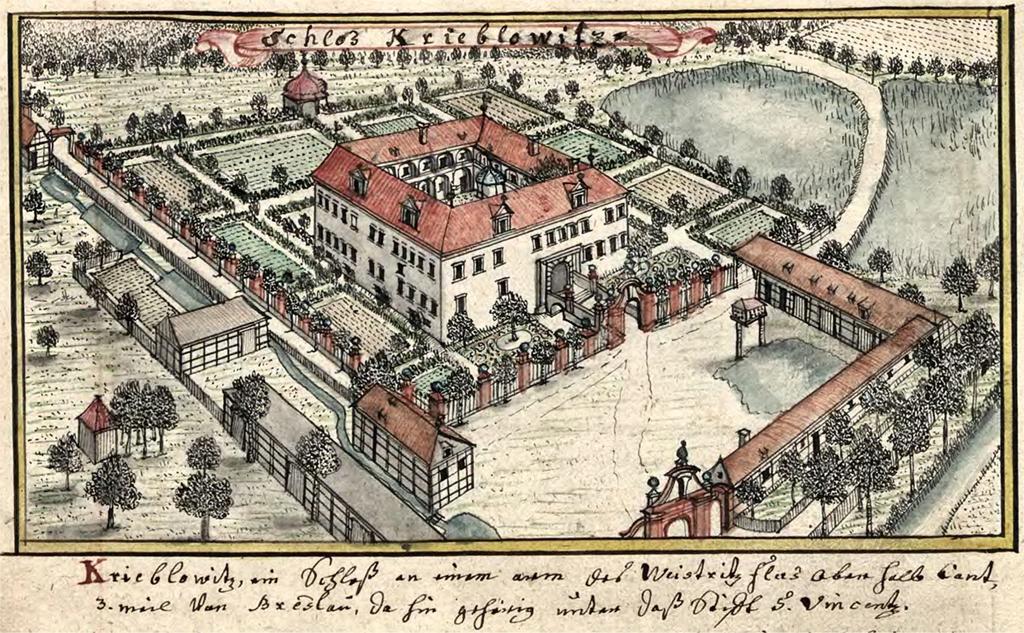 Schloß Krieblowitz
Krieblowitz, ein Schloß an einem arm des Weistritz flus oben halb Cant,
3. meil Von Breslau, da hin gehörig unter daß Stifft S. Vincenty.